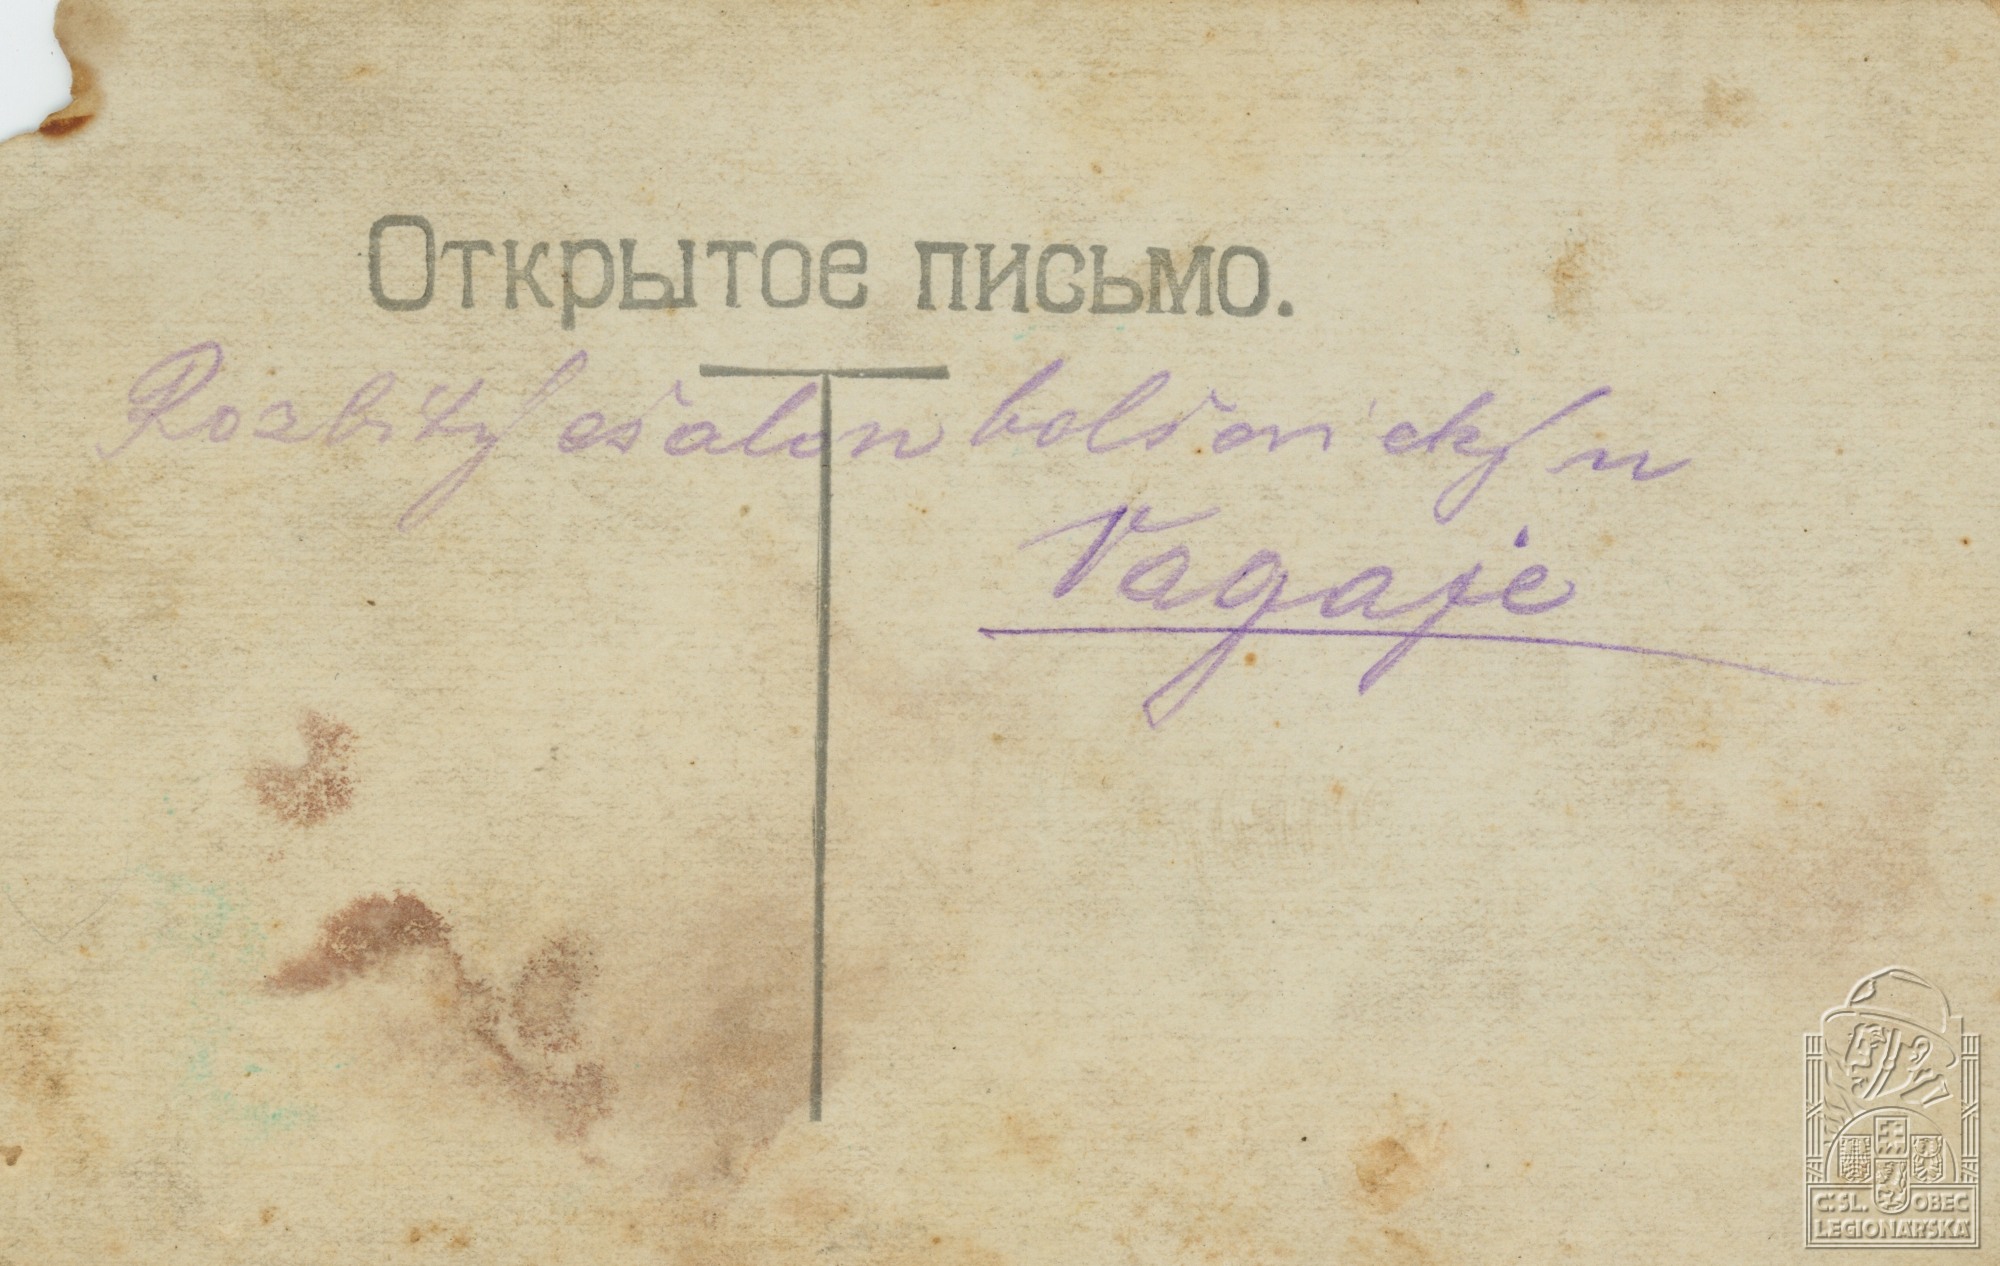 Открытое письмо.
Rozbitý ešalon bolševický u
Vagaje
Č.SL. OBEC
LEGIONÁŘSKÁ